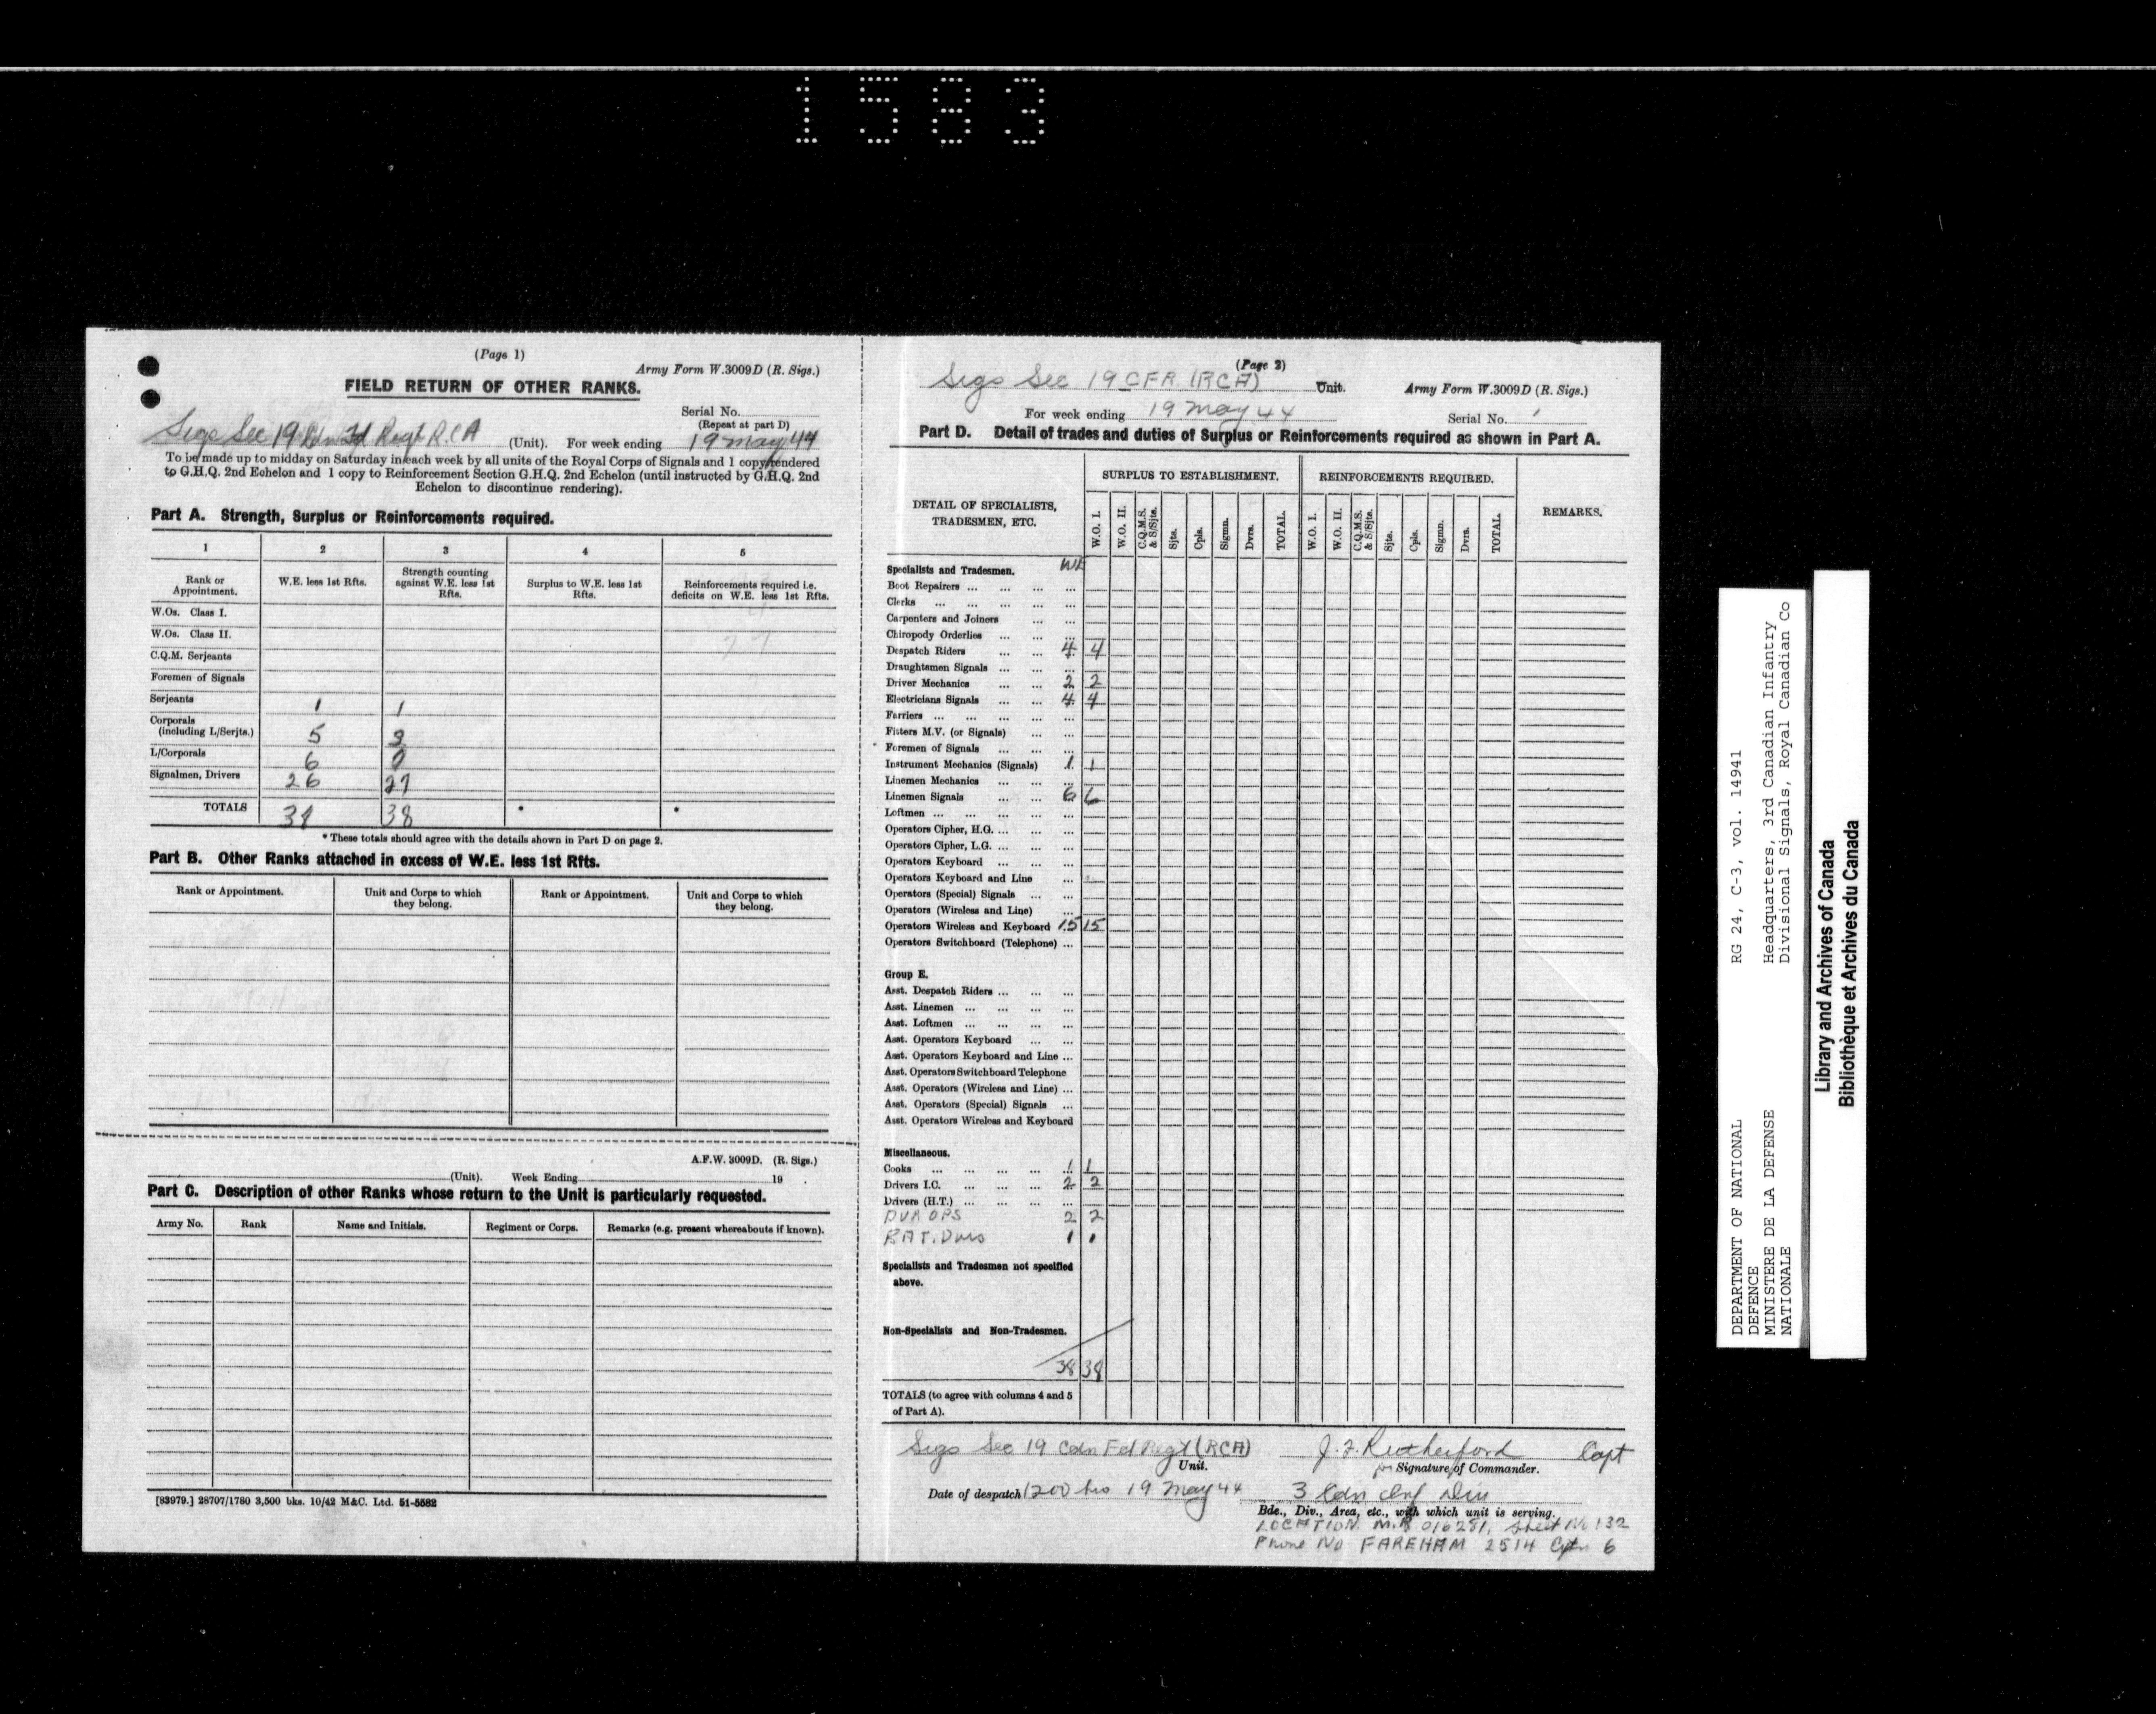 1583
(Page 1)
Army Form W.3009D (R. Sigs.)
FIELD RETURN OF OTHER RANKS.
Serial No.
(Repeat at part D)
Sigs Sec 19 Cdn Fd Regt RCA (Unit). For week ending 19 May 44
To be made up to midday on Saturday in each week by all units of the Royal Corps of Signals and 1 copy rendered
to G.H.Q. 2nd Echelon and 1 copy to Reinforcement Section G.H.Q. 2nd Echelon (until instructed by G.H.Q. 2nd
Echelon to discontinue rendering).
Part A. Strength, Surplus or Reinforcements required.
1 2 3 4 5
Rank or Appointment. W.E. less 1st Rfts. Strength counting against W.E. less 1st Rfts. Surplus to W.E. less 1st Rfts. Reinforcements required i.e. deficits on W.E. less 1st Rfts.
W.Os. Class I.
W.Os. Class II.
C.Q.M. Serjeants
Foremen of Signals
Serjeants 1 1
Corporals (including L/Serjts.) 5 3
L/Corporals 6
Signalmen, Drivers 26 27
TOTALS 38 38 * *
* These totals should agree with the details shown in Part D on page 2.
Part B. Other Ranks attached in excess of W.E. less 1st Rfts.
Rank or Appointment. Unit and Corps to which they belong. Rank or Appointment. Unit and Corps to which they belong.
A.F.W. 3009D. (R. Sigs.)
(Unit). Week Ending 19 .
Part C. Description of other Ranks whose return to the Unit is particularly requested.
Army No. Rank Name and Initials. Regiment or Corps. Remarks (e.g. present whereabouts if known).
[83979.] 28707/1780 3,500 bks. 10/42 M&C. Ltd. 51-5582
(Page 2)
Sigs Sec 19 CFR (RCA) Unit. Army Form W.3009D (R. Sigs.)
For week ending 19 May 44 Serial No.
Part D. Detail of trades and duties of Surplus or Reinforcements required as shown in Part A.
DETAIL OF SPECIALISTS, TRADESMEN, ETC. SURPLUS TO ESTABLISHMENT. REINFORCEMENTS REQUIRED. REMARKS.
W.O. I. W.O. II. C.Q.M.S. & S/Sjts. Sjts. Cpls. Sigmn. Dvrs. TOTAL. W.O. I. W.O. II. C.Q.M.S. & S/Sjts. Sjts. Cpls. Sigmn. Dvrs. TOTAL.
Specialists and Tradesmen. WE
Boot Repairers ... ... ... ...
Clerks ... ... ... ... ...
Carpenters and Joiners ... ...
Chiropody Orderlies ... ... ...
Despatch Riders ... ... 4 4
Draughtsmen Signals ... ... ...
Driver Mechanics ... ... 2 2
Electricians Signals ... ... 4 4
Farriers ... ... ... ... ...
Fitters M.V. (or Signals) ... ...
Foremen of Signals ... ... ...
Instrument Mechanics (Signals) 1 1
Linemen Mechanics ... ... ...
Linemen Signals ... ... 6 6
Loftmen ... ... ... ... ...
Operators Cipher, H.G. ... ... ...
Operators Cipher, L.G. ... ... ...
Operators Keyboard ... ... ...
Operators Keyboard and Line ...
Operators (Special) Signals ... ...
Operators (Wireless and Line) ...
Operators Wireless and Keyboard 15 15
Operators Switchboard (Telephone) ...
Group E.
Asst. Despatch Riders ... ... ...
Asst. Linemen ... ... ... ...
Asst. Loftmen ... ... ... ...
Asst. Operators Keyboard ... ...
Asst. Operators Keyboard and Line ...
Asst. Operators Switchboard Telephone
Asst. Operators (Wireless and Line) ...
Asst. Operators (Special) Signals ...
Asst. Operators Wireless and Keyboard
Miscellaneous.
Cooks ... ... ... ... 1 1
Drivers I.C. ... ... ... 2 2
Drivers (H.T.) ... ... ... ...
DVR OPS 2 2
BAT. Dvrs 1 1
Specialists and Tradesmen not specified
above.
Non-Specialists and Non-Tradesmen.
38 38
TOTALS (to agree with columns 4 and 5
of Part A).
Sigs Sec 19 Cdn Fd Regt (RCA) J.F. Rutherford Capt
Unit. for Signature of Commander.
Date of despatch 1200 hrs 19 May 44 3 Cdn Inf Div
Bde., Div., Area, etc., with which unit is serving.
LOCATION. M.R 016281, Sheet No 132
Phone No FAREHAM 2514 6
DEPARTMENT OF NATIONAL DEFENCE RG 24, C-3, vol. 14941
MINISTERE DE LA DEFENSE NATIONALE Headquarters, 3rd Canadian Infantry
Divisional Signals, Royal Canadian Co
Library and Archives of Canada
Bibliothèque et Archives du Canada